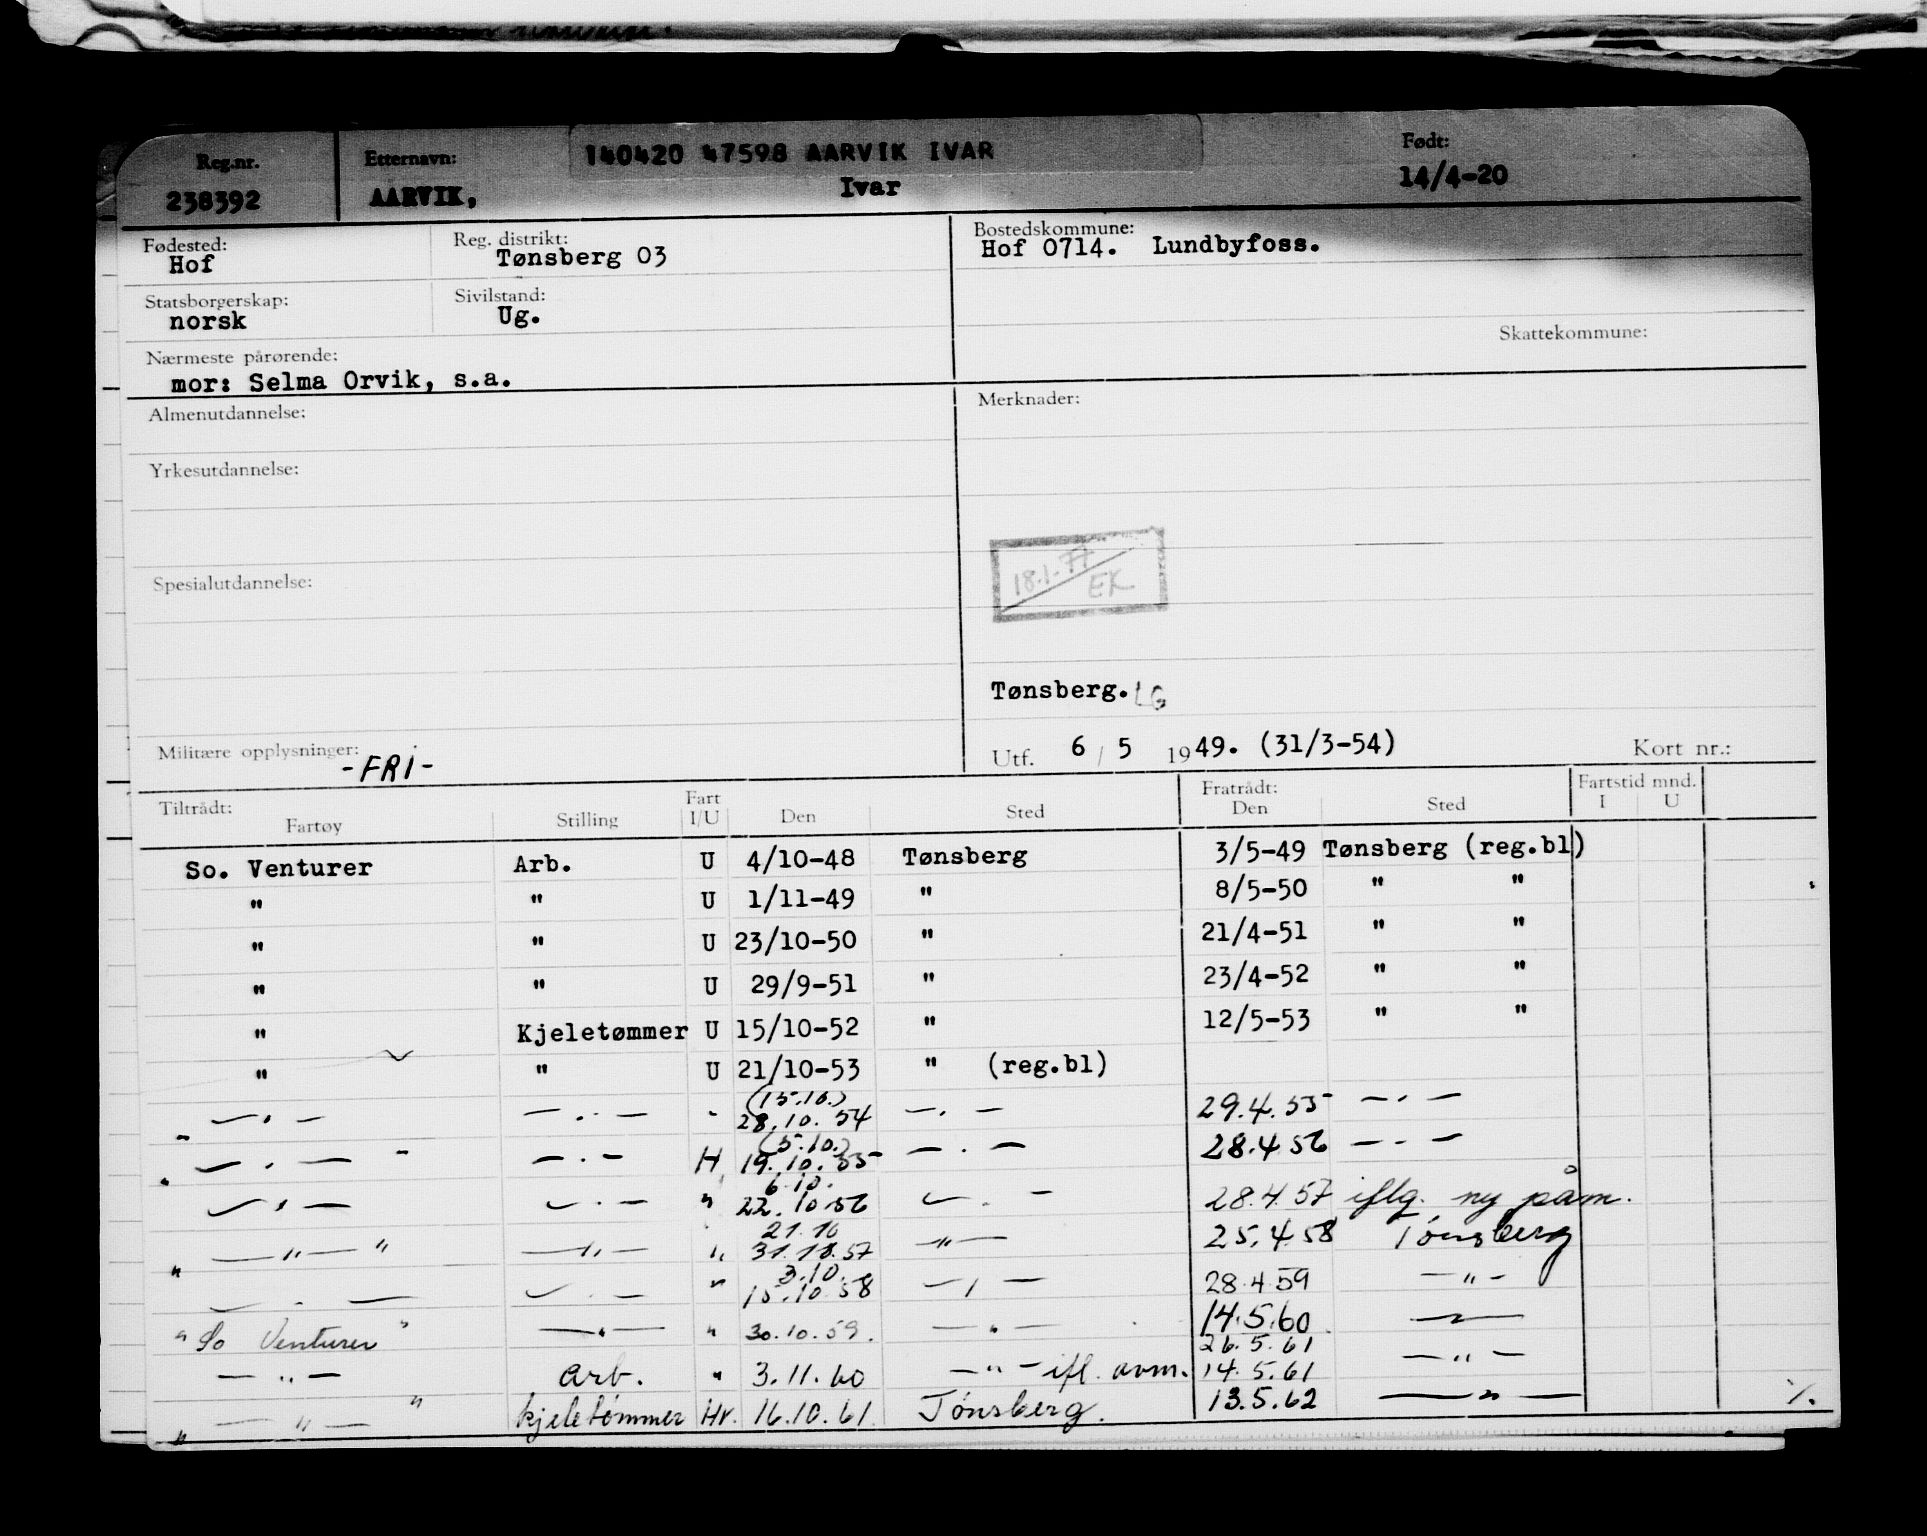 Reg.nr. Etternavn: 140420 47598 AARVIK IVAR Født:
238392 AARVIK, Ivar 14/4-20
Fødested: Reg. distrikt: Bostedskommune:
Hof Tønsberg 03 Hof 0714. Lundbyfoss.
Statsborgerskap: Sivilstand:
norsk Ug.
Skattekommune:
Nærmeste pårørende:
mor: Selma Orvik, s.a.
Almenutdannelse: Merknader:
Yrkesutdannelse:
18.1-77
EK
Spesialutdannelse:
Tønsberg. LG
Militære opplysninger: -FRI-
Utf. 6 / 5 1949. (31/3-54) Kort nr.:
Tiltrådt: Fart Fratrådt: Fartstid mnd.
Fartøy Stilling I/U Den Sted Den Sted I U
So. Venturer Arb. U 4/10-48 Tønsberg 3/5-49 Tønsberg (reg.bl)
" " U 1/11-49 " 8/5-50 " "
" " U 23/10-50 " 21/4-51 " "
" " U 29/9-51 " 23/4-52 " "
" Kjeletømmer U 15/10-52 " 12/5-53 " "
" " U 21/10-53 " (reg.bl)
(15.10.)
— " — — " — " 28.10.54 — " — 29.4.55 — " —
(5.10.)
" — " — " — " — H 19.10.55 — " — 28.4.56 — " —
6.10.
— " — — " — " 22.10.56 — " — 28.4.57 iflg. ny påm.
21.10
" — " — " — " — " 31.10.57 — " — 25.4.58 Tønsberg
3.10.
— " — — " — " 15.10.58 — " — 28.4.59 — " —
" So Venturer " — " — " 30.10.59. — " — 14.5.60 — " —
26.5.61
— " — arb. " 3.11.60 — " — ifl. avm. 14.5.61 — " —
" — " — " kjeletømmer Hv. 16.10.61 Tønsberg. 13.5.62 — " — %.